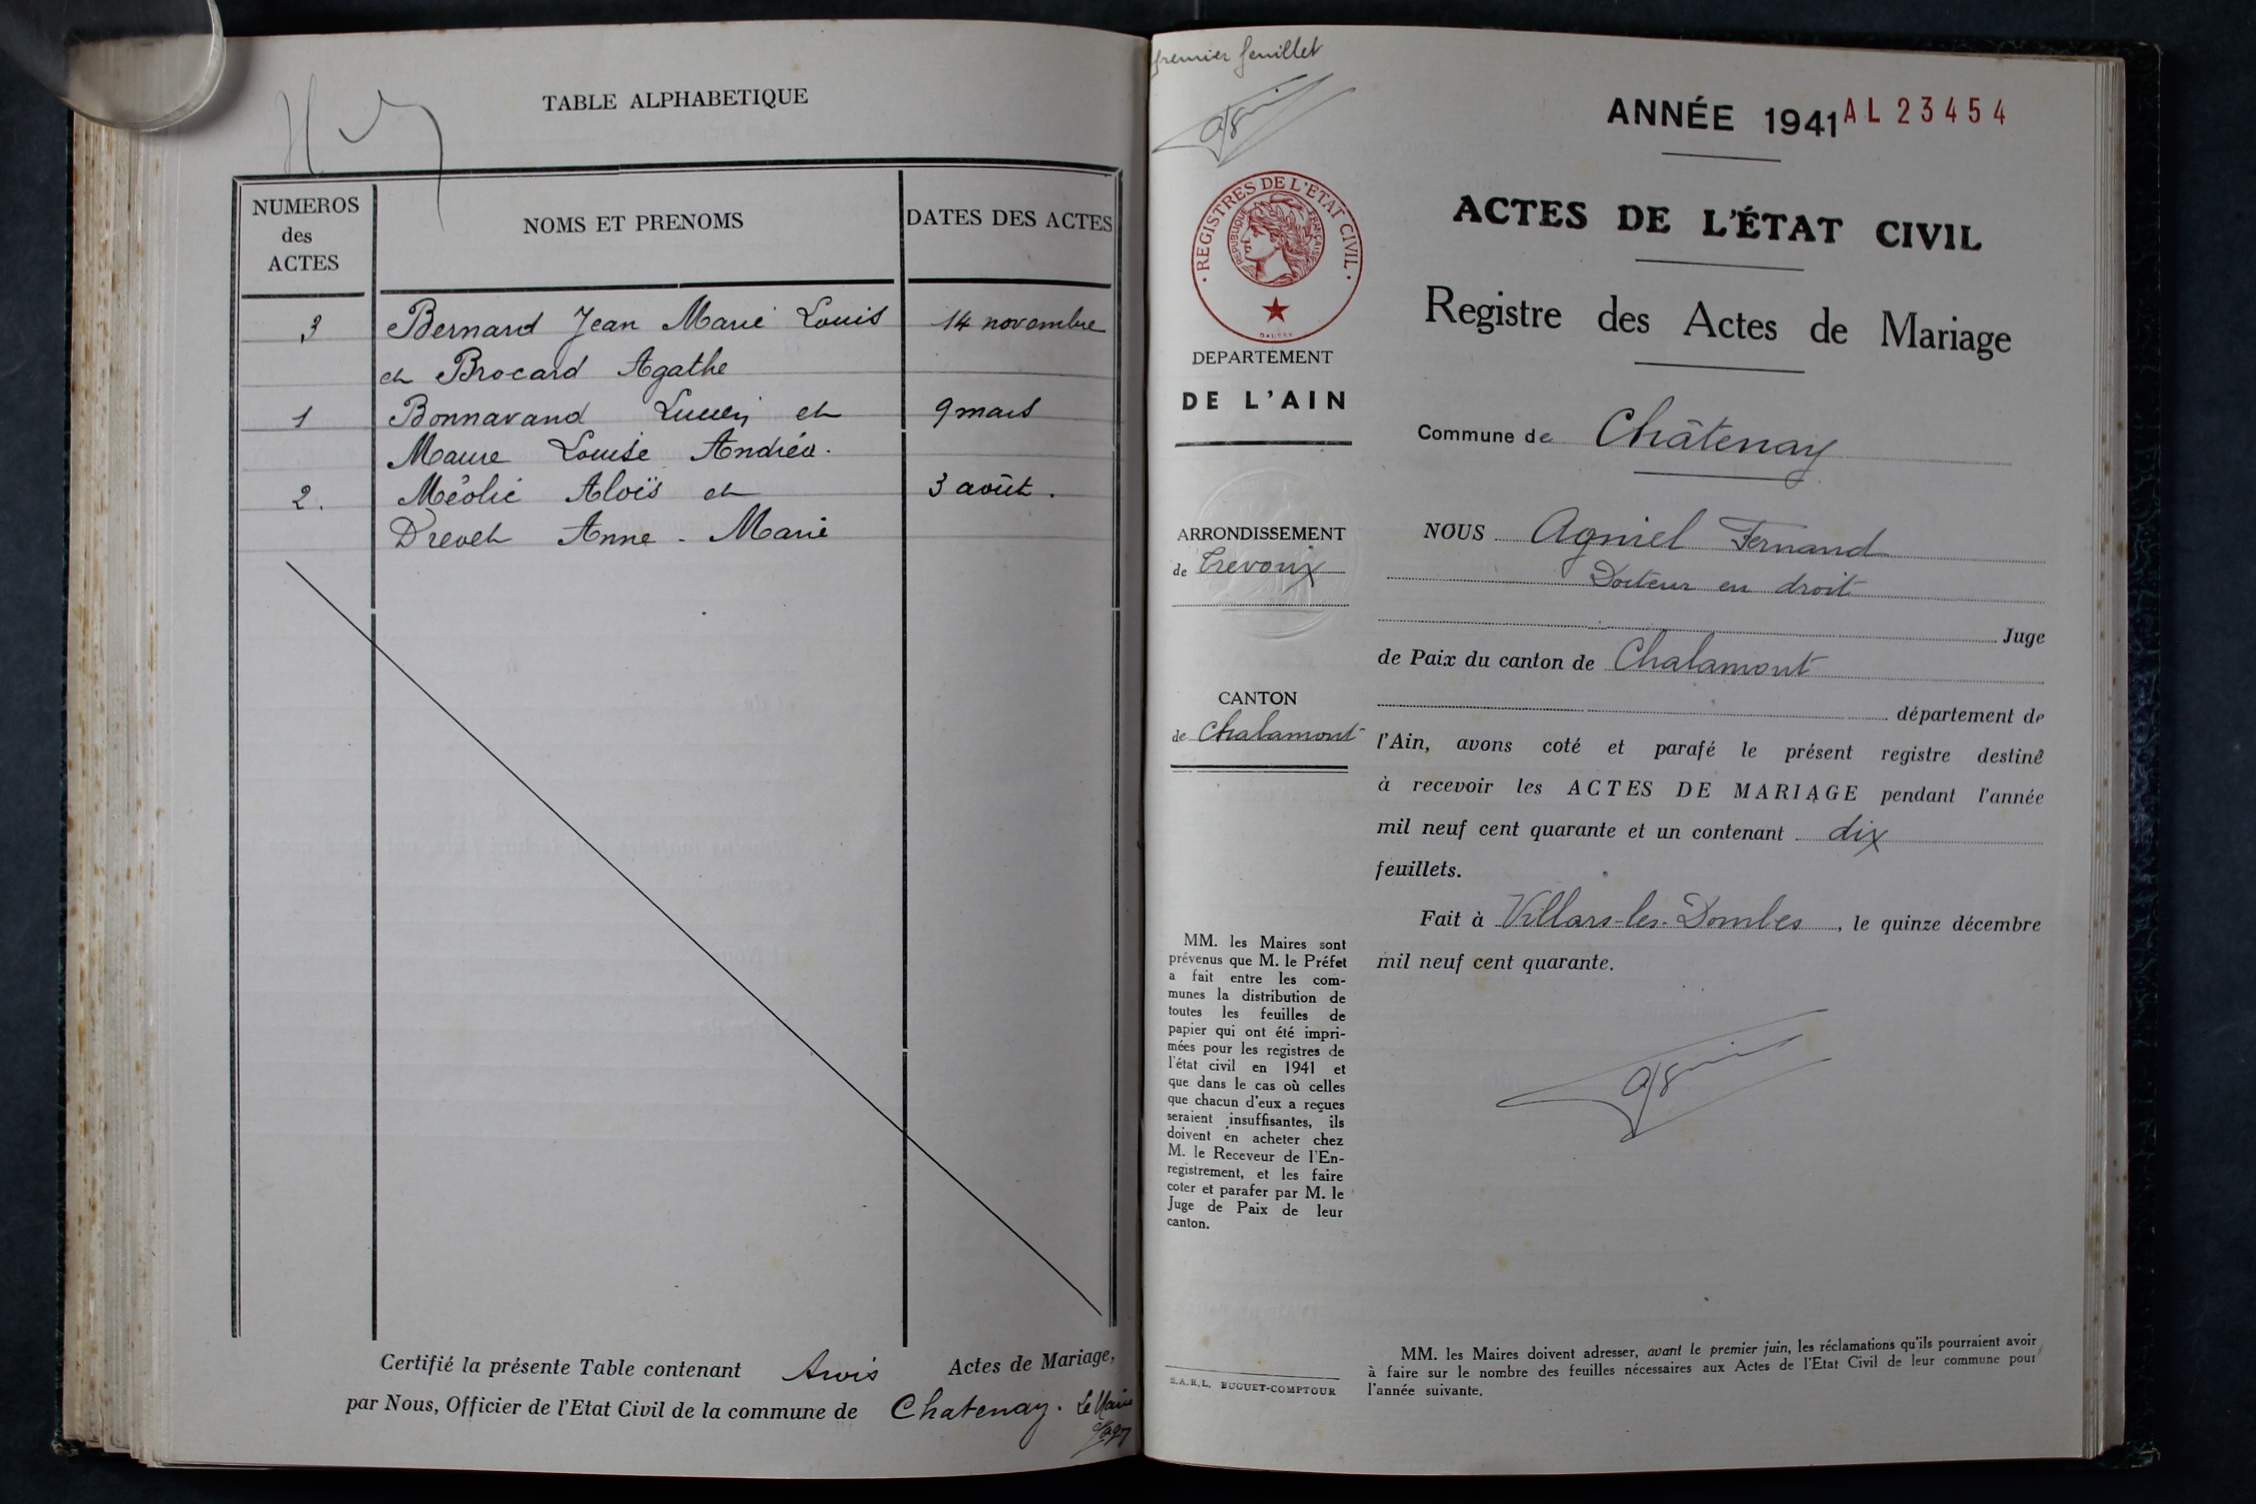 TABLE ALPHABETIQUE
NUMEROS
des
ACTES
NOMS ET PRENOMS
DATES DES ACTES
3 Bernard Jean Marie Louis 14 novembre
et Brocard Agathe
1 Bonnavand Lucien et 9 mars
Maure Louise Andréa.
2. Méolic Aloïs et 3 août.
Drevet Anne-Marie
Certifié la présente Table contenant trois Actes de Mariage,
par Nous, Officier de l'Etat Civil de la commune de Chatenay. Le Maire
premier feuillet
ANNÉE 1941 AL 23454
· REGISTRES DE L'ÉTAT CIVIL ·
REPUBLIQUE FRANÇAISE
DEPARTEMENT
DE L'AIN
ARRONDISSEMENT
de Trevoux
CANTON
de Chalamont
MM. les Maires sont
prévenus que M. le Préfet
a fait entre les com-
munes la distribution de
toutes les feuilles de
papier qui ont été impri-
mées pour les registres de
l'état civil en 1941 et
que dans le cas où celles
que chacun d'eux a reçues
seraient insuffisantes, ils
doivent en acheter chez
M. le Receveur de l'En-
registrement, et les faire
coter et parafer par M. le
Juge de Paix de leur
canton.
S.A.R.L. BUGUET-COMPTOUR
ACTES DE L'ÉTAT CIVIL
Registre des Actes de Mariage
Commune de Châtenay
NOUS Agniel Fernand
Docteur en droit
Juge
de Paix du canton de Chalamont
département de
l'Ain, avons coté et parafé le présent registre destiné
à recevoir les ACTES DE MARIAGE pendant l'année
mil neuf cent quarante et un contenant dix
feuillets.
Fait à Villars-les-Dombes, le quinze décembre
mil neuf cent quarante.
MM. les Maires doivent adresser, avant le premier juin, les réclamations qu'ils pourraient avoir
à faire sur le nombre des feuilles nécessaires aux Actes de l'Etat Civil de leur commune pour
l'année suivante.